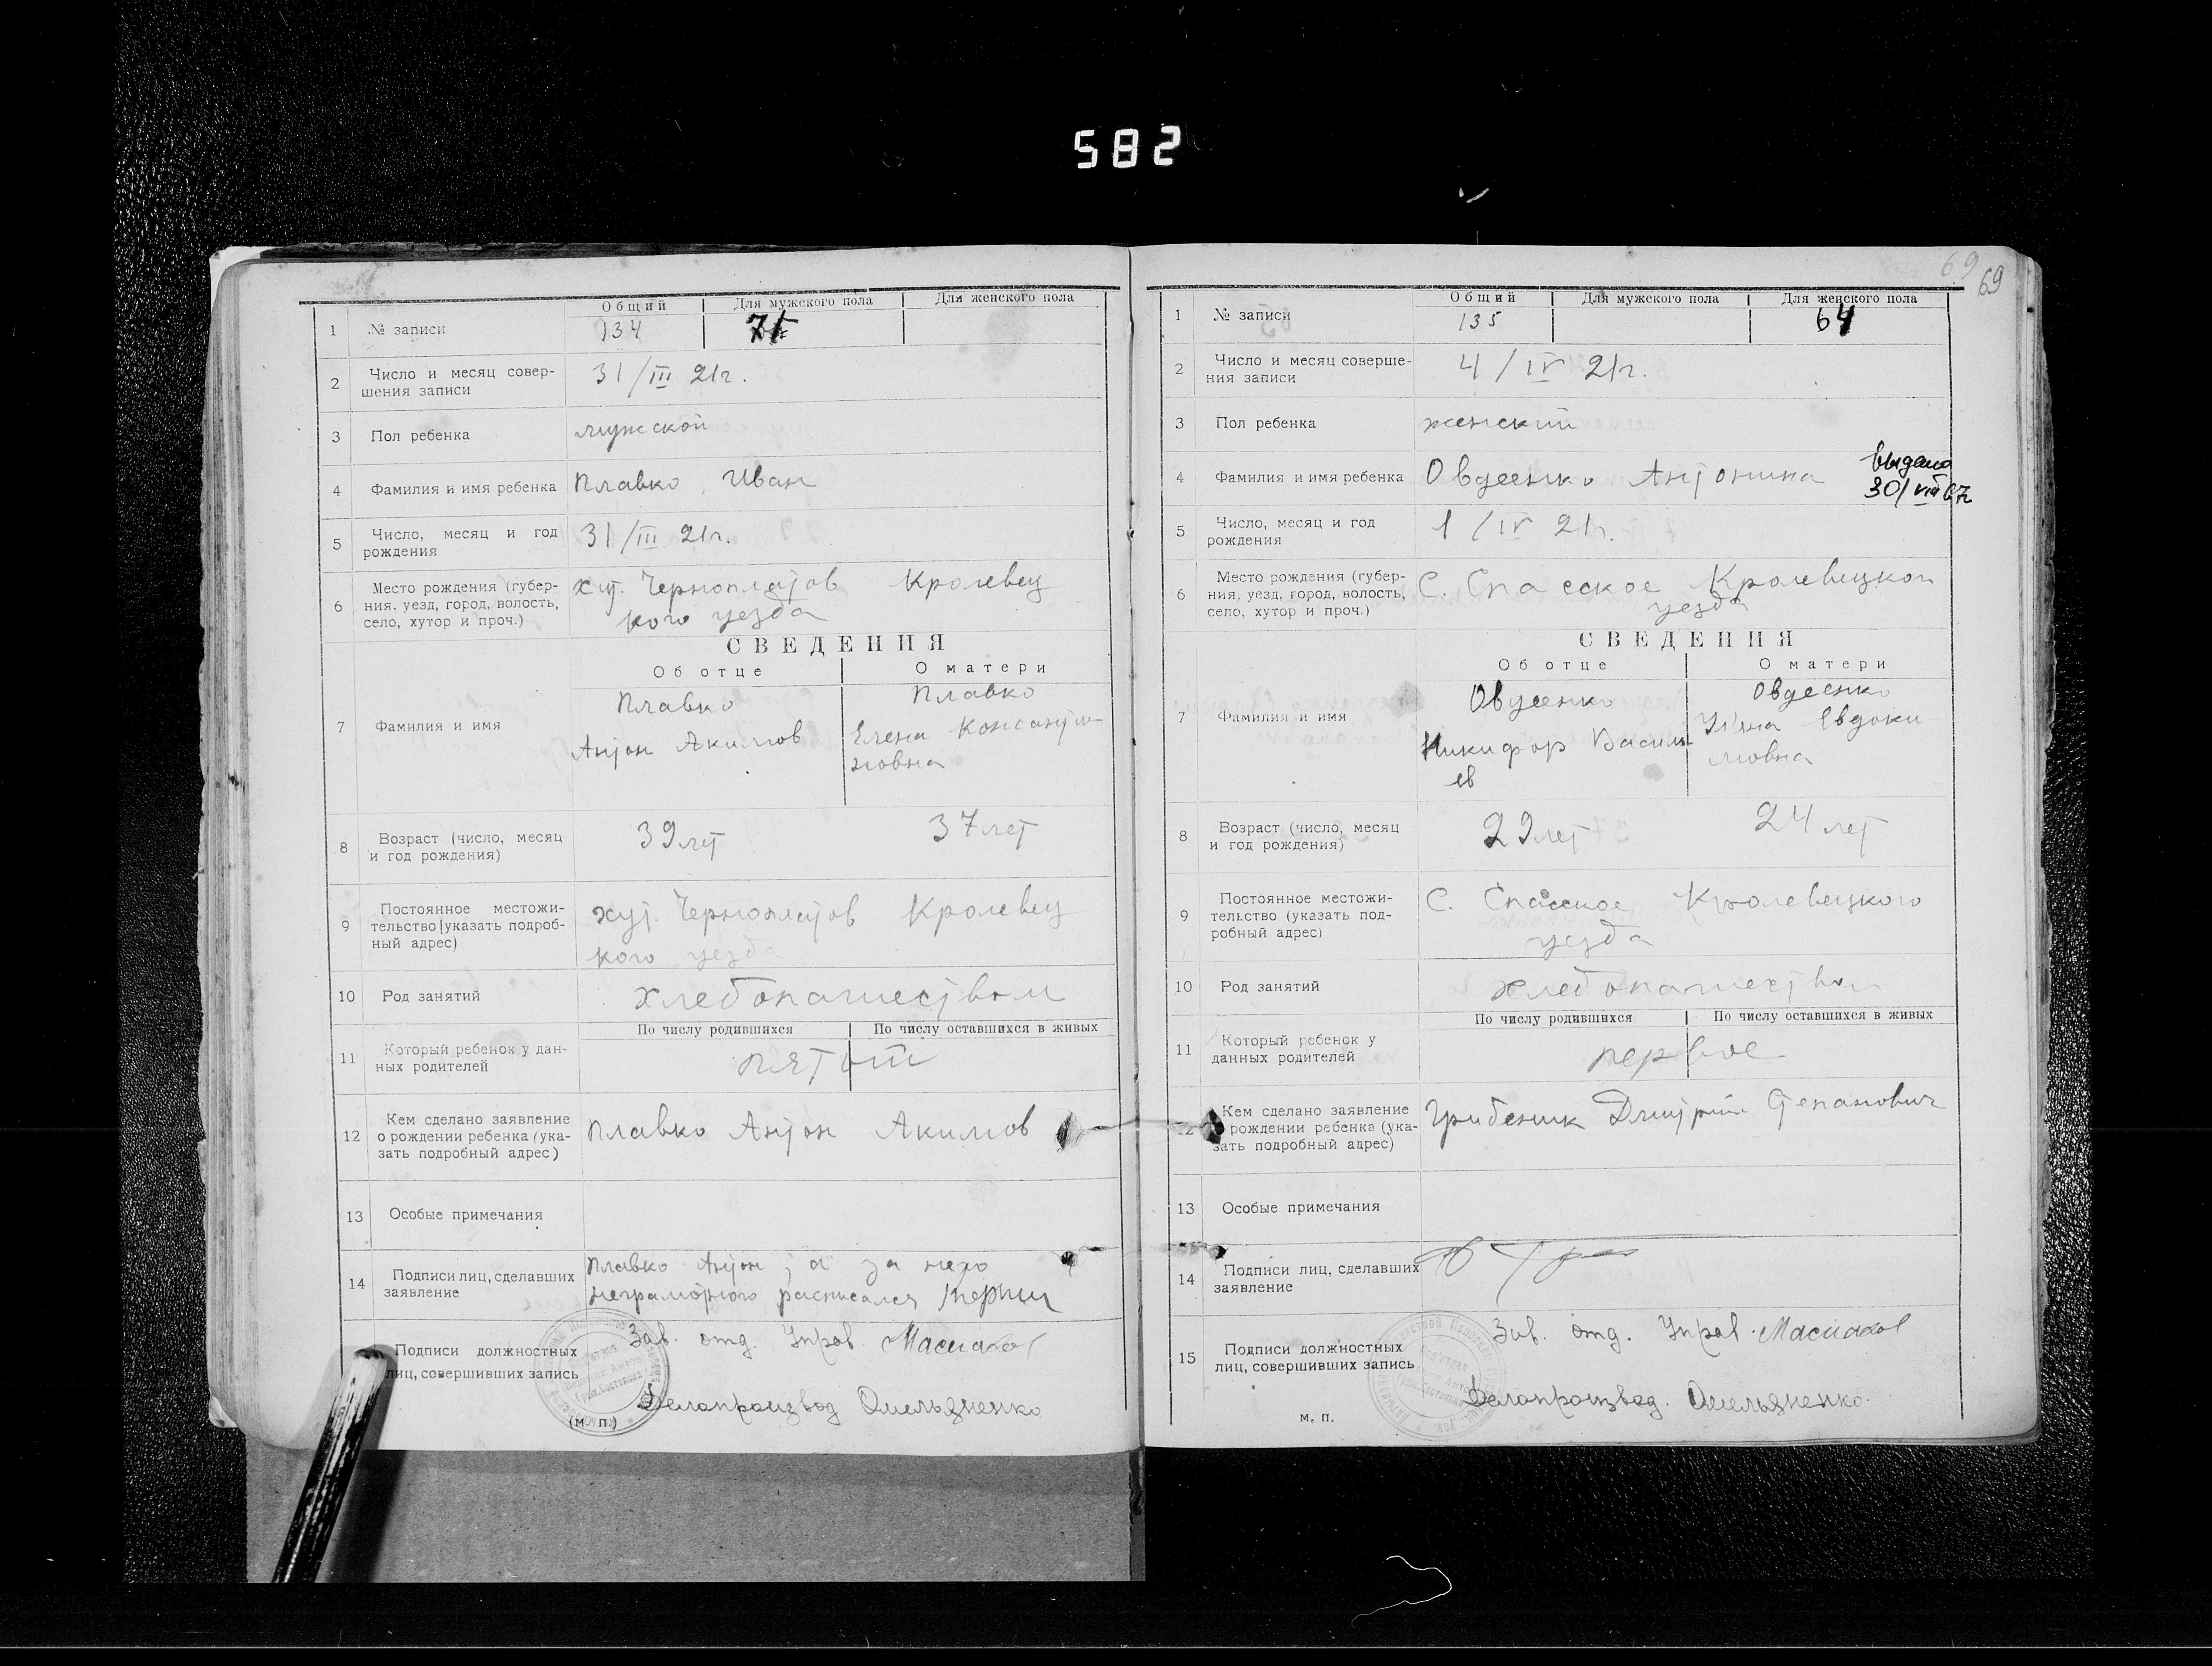 582
69 69
Общий Для мужского пола Для женского пола
1 № записи 134 71
2 Число и месяц совер-
шения записи 31/III 21г.
3 Пол ребенка мужской
4 Фамилия и имя ребенка Плавко Иван
5 Число, месяц и год
рождения 31/III 21г.
6 Место рождения (губер-
ния, уезд, город, волость,
село, хутор и проч.) хут. Чернoплатов Кролевец
кого уезда
СВЕДЕНИЯ
Об отце О матери
7 Фамилия и имя
Плавко Плавко
Антон Акимов Елена
8 Возраст (число, месяц
и год рождения) 39 лет 37 лет
9 Постоянное местожи-
тельство (указать подроб-
ный адрес) хут. Черноплатов Кролевец
кого уезда
10 Род занятий хлебопашеством
По числу родившихся По числу оставшихся в живых
11 Который ребенок у дан-
ных родителей пятый
12 Кем сделано заявление
о рождении ребенка (ука-
зать подробный адрес) Плавко Антон Акимов
13 Особые примечания
14 Подписи лиц, сделавших
заявление Плавко Антон, а за него
неграмотного расписался
Подписи должностных
лиц, совершивших запись Зав. отд. Управ.
Делопроизвод Омельяненко
(м. п.)
Общий Для мужского пола Для женского пола
1 № записи 135 64
2 Число и месяц соверше-
ния записи 4/IV 21г.
3 Пол ребенка женский
4 Фамилия и имя ребенка Овдеенко Антонина
выдано
30/VIII 67г
5 Число, месяц и год
рождения 1/IV 21г.
6 Место рождения (губер-
ния, уезд, город, волость,
село, хутор и проч.) С. Спасское Кролевецкого
уезда
СВЕДЕНИЯ
Об отце О матери
7 Фамилия и имя
Овдеенко Овдеенко
Никифор Василь- Евдоки
ев мовна
8 Возраст (число, месяц
и год рождения) 29 лет 24 лет
9 Постоянное местожи-
тельство (указать под-
робный адрес) С. Спасское Кролевецкого
уезда
10 Род занятий хлебопашеством
По числу родившихся По числу оставшихся в живых
11 Который ребенок у
данных родителей первое
12 Кем сделано заявление
о рождении ребенка (ука-
зать подробный адрес) Грибеник Дмитрий Степанович
13 Особые примечания
14 Подписи лиц, сделавших
заявление
15 Подписи должностных
лиц, совершивших запись Зав. отд. Управ.
Делопроизвод. Омельяненко
м. п.